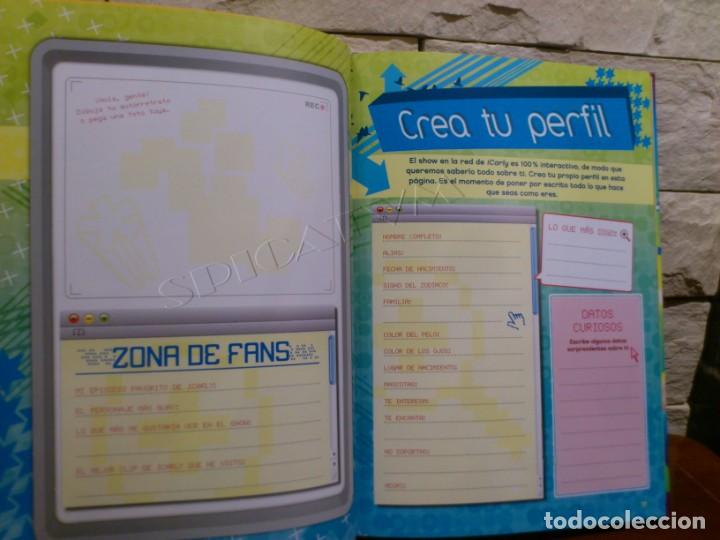 ¡Hola, gente!
Dibuja tu autorretrato
o pega una foto tuya.
REC
ZONA DE FANS
MI EPISODIO FAVORITO DE ICARLY:
EL PERSONAJE MÁS GUAY:
LO QUE MÁS ME GUSTARÍA VER EN EL SHOW:
EL MEJOR CLIP DE ICARLY QUE HE VISTO:
Crea tu perfil
El show en la red de iCarly es 100% interactivo, de modo que
queremos saberlo todo sobre ti. Crea tu propio perfil en esta
página. Es el momento de poner por escrito todo lo que hace
que seas como eres.
NOMBRE COMPLETO:
ALIAS:
FECHA DE NACIMIENTO:
SIGNO DEL ZODÍACO:
FAMILIA:
COLOR DEL PELO:
COLOR DE LOS OJOS:
LUGAR DE NACIMIENTO:
MASCOTAS:
TE INTERESA:
TE ENCANTA:
NO SOPORTAS:
LO QUE MÁS
DATOS
CURIOSOS
Escribe algunos datos
sorprendentes sobre ti:
todocoleccion
todocoleccion.net